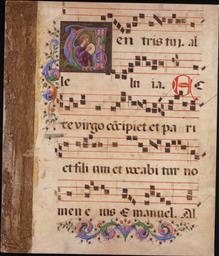 en tris tui. al
le lu ia. Ec
ce virgo cōcipiet et pa ri
et fili um et vocabi tur no
men e ius E manuel. Al